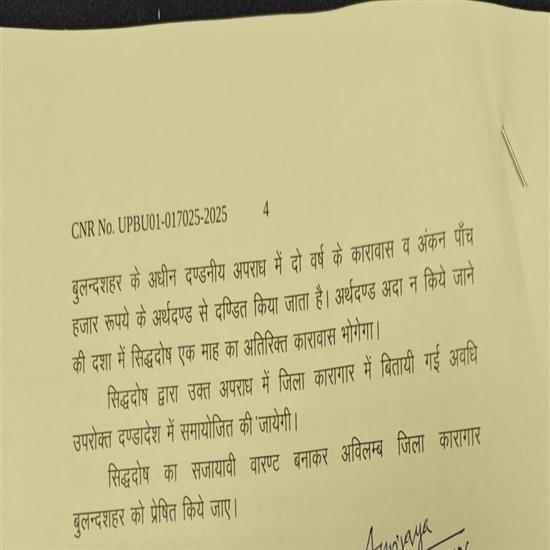 CNR No. UPBU01-017025-2025 4
बुलन्दशहर के अधीन दण्डनीय अपराध में दो वर्ष के कारावास व अंकन पाँच
हजार रूपये के अर्थदण्ड से दण्डित किया जाता है। अर्थदण्ड अदा न किये जाने
की दशा में सिद्धदोष एक माह का अतिरिक्त कारावास भोगेगा।
सिद्धदोष द्वारा उक्त अपराध में जिला कारागार में बितायी गई अवधि
उपरोक्त दण्डादेश में समायोजित की जायेगी।
सिद्धदोष का सजायावी वारण्ट बनाकर अविलम्ब जिला कारागार
बुलन्दशहर को प्रेषित किये जाए।